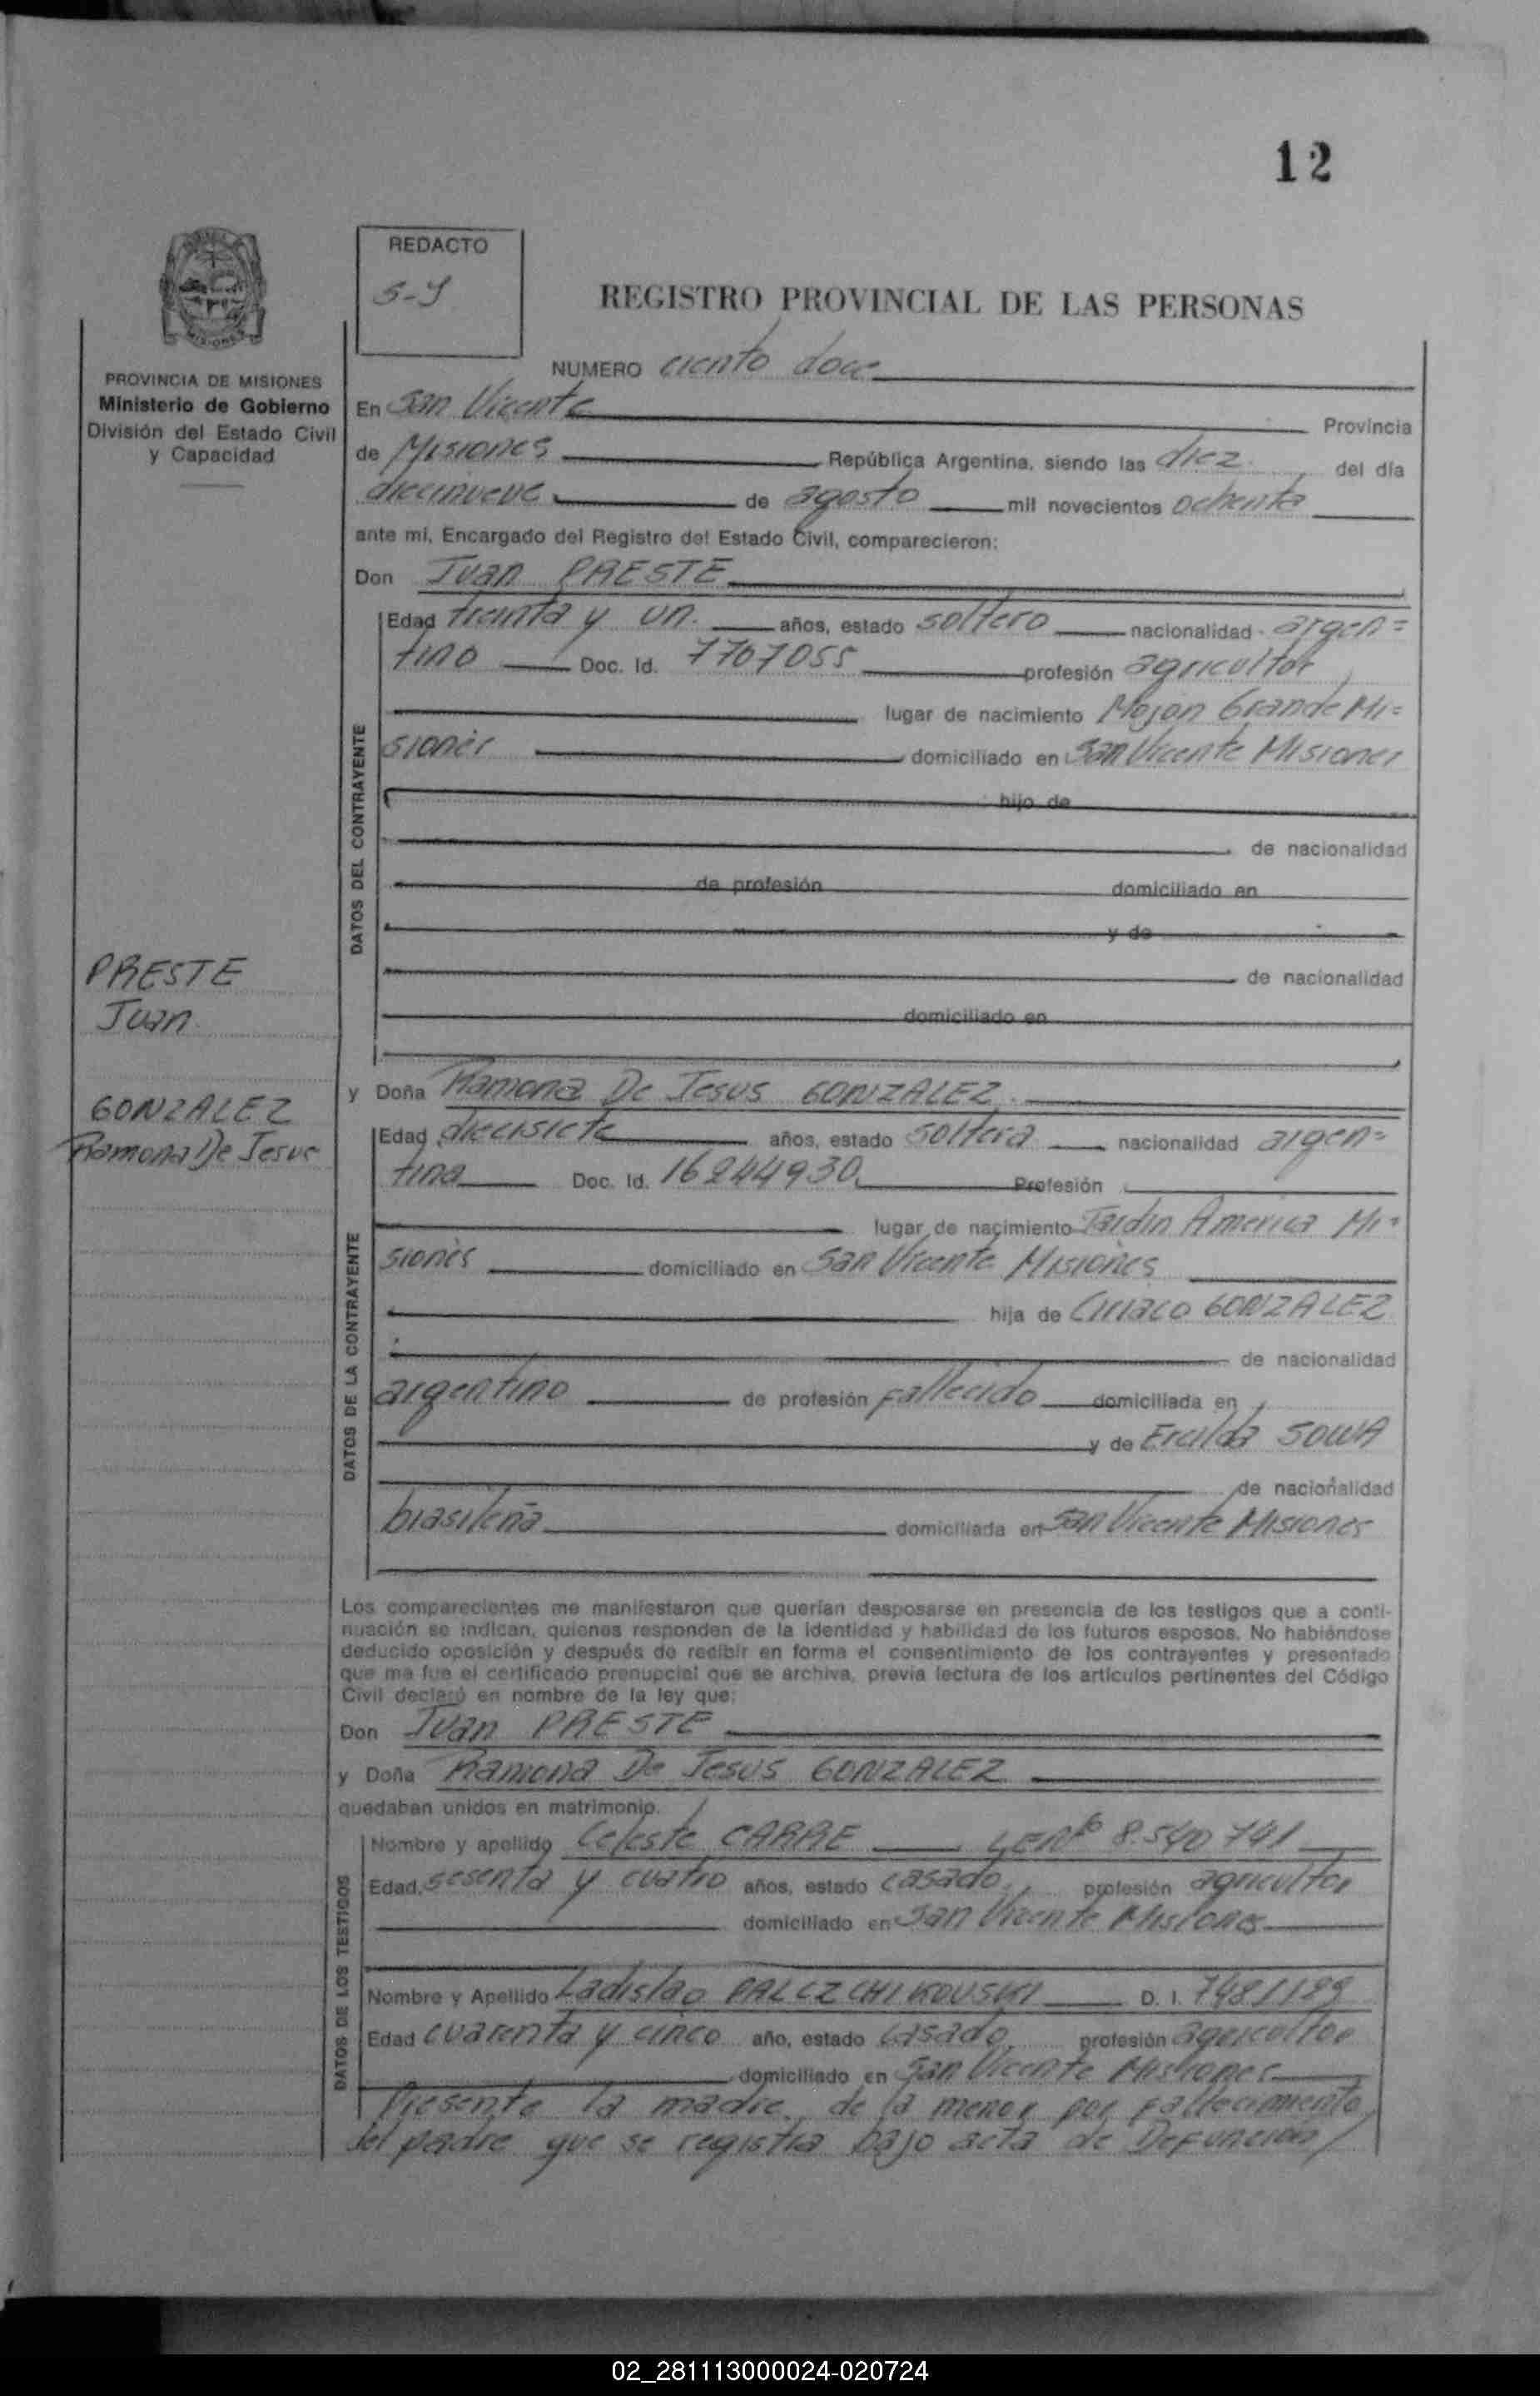 12
REDACTO
S-Y
REGISTRO PROVINCIAL DE LAS PERSONAS
PROVINCIA DE MISIONES
Ministerio de Gobierno
División del Estado Civil
y Capacidad
NUMERO ciento doce
En San Vicente Provincia
de Misiones República Argentina, siendo las diez del día
diecinueve de agosto mil novecientos ochenta
ante mi, Encargado del Registro del Estado Civil, comparecieron:
Don Juan PRESTE
Edad treinta y un años, estado soltero nacionalidad argen=
tino Doc. Id. 7707055 profesión agricultor
lugar de nacimiento Mojon Grande Mi=
siones domiciliado en San Vicente Misiones
hijo de
de nacionalidad
de profesión domiciliado en
y de
de nacionalidad
domiciliado en
DATOS DEL CONTRAYENTE
PRESTE
Juan
GONZALEZ
Ramona De Jesus
y Doña Ramona De Jesus GONZALEZ
Edad diecisiete años, estado soltera nacionalidad argen=
tina Doc. Id. 16244930 Profesión
lugar de nacimiento Jardin America Mi=
siones domiciliado en San Vicente Misiones
hija de Ciriaco GONZALEZ
de nacionalidad
argentino de profesión fallecido domiciliada en
y de Ercilda SOWA
de nacionalidad
brasileña domiciliada en San Vicente Misiones
DATOS DE LA CONTRAYENTE
Los comparecientes me manifestaron que querían desposarse en presencia de los testigos que a conti-
nuación se indican, quienes responden de la identidad y habilidad de los futuros esposos. No habiéndose
deducido oposición y después de recibir en forma el consentimiento de los contrayentes y presentado
que me fue el certificado prenupcial que se archiva, previa lectura de los artículos pertinentes del Código
Civil declaró en nombre de la ley que:
Don Juan PRESTE
y Doña Ramona De Jesus GONZALEZ
quedaban unidos en matrimonio.
Nombre y apellido Celeste CARRE LENº 8.540741
Edad sesenta y cuatro años, estado casado profesión agricultor
domiciliado en San Vicente Misiones
Nombre y Apellido Ladislao PALCZCHIKOUSKI D. I. 7481189
Edad cuarenta y cinco año, estado casado profesión agricultor
domiciliado en San Vicente Misiones
DATOS DE LOS TESTIGOS
Presente la madre de la menor por fallecimiento
del padre que se registra bajo acta de Defuncion/
02_281113000024-020724